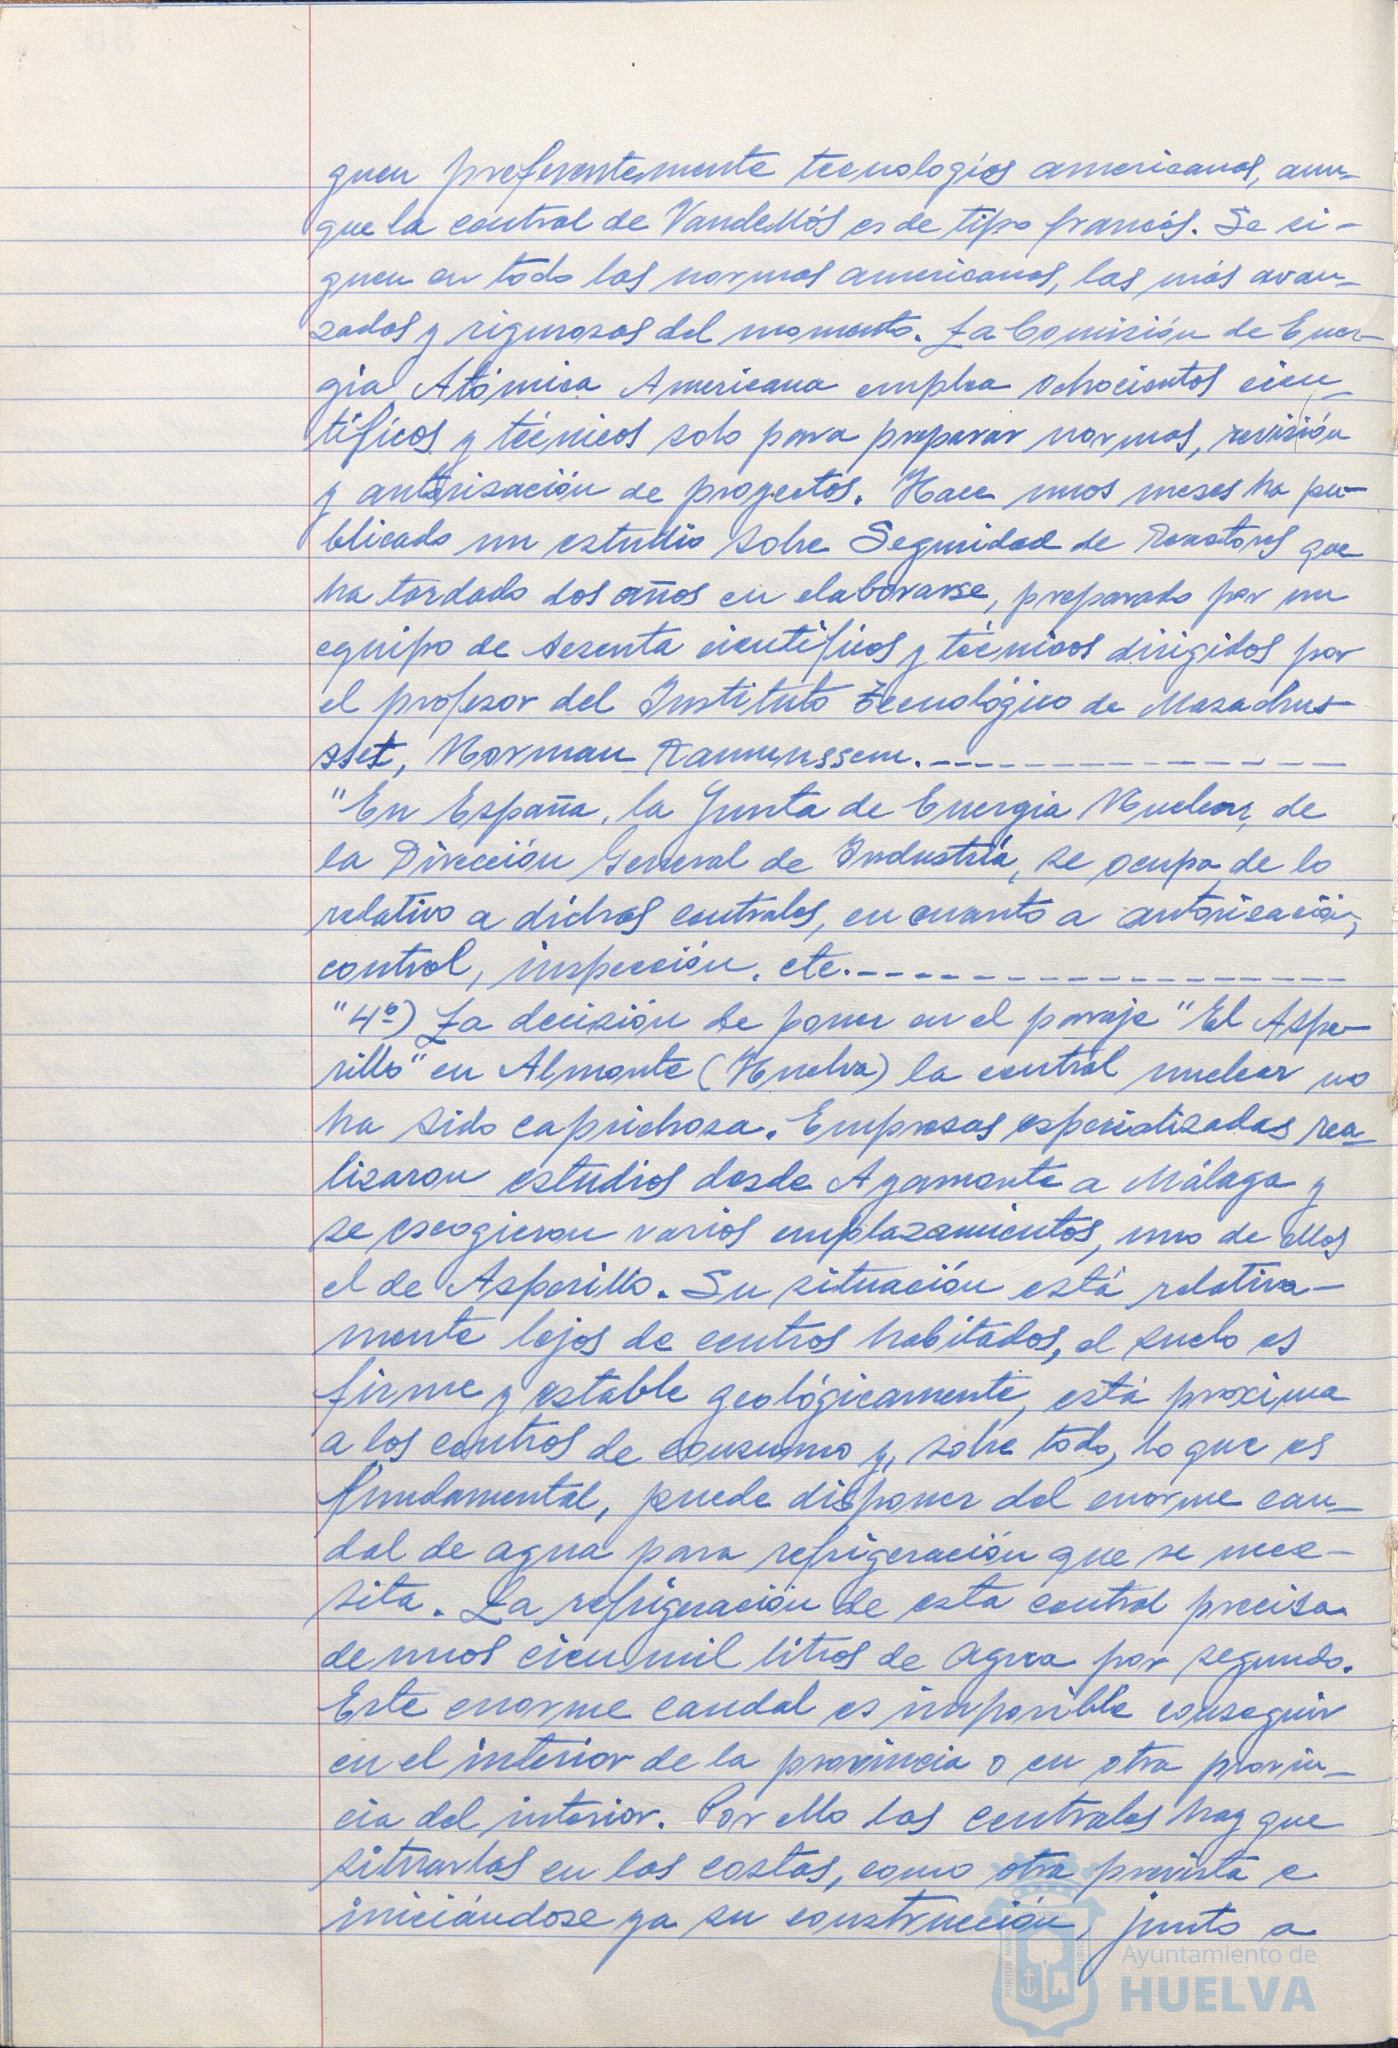 guen preferentemente tecnologías americanas, aun-
que la central de Vandellós es de tipo francés. Se si-
guen en todo las normas americanas, las más avan-
zadas y rigurosas del momento. La Comisión de Ener-
gía Atómica Americana emplea ochocientos cien-
tíficos y técnicos solo para preparar normas, revisión
y autorización de proyectos. Hace unos meses ha pu-
blicado un estudio sobre Seguridad de Reactores que
ha tardado dos años en elaborarse, preparado por un
equipo de sesenta científicos y técnicos dirigidos por
el profesor del Instituto Tecnológico de Masachus-
sset, Norman Rammussem.
"En España, la Junta de Energía Nuclear, de
la Dirección General de Industria, se ocupa de lo
relativo a dichas centrales, en cuanto a autorización,
control, inspección, etc.
"4º) La decisión de poner en el paraje "El Aspe-
rillo" en Almonte (Huelva) la central nuclear no
ha sido caprichosa. Empresas especializadas rea-
lizaron estudios desde Ayamonte a Málaga y
se escogieron varios emplazamientos, uno de ellos
el de Asperillo. Su situación está relativa-
mente lejos de centros habitados, el suelo es
firme y estable geológicamente, está próxima
a los centros de consumo y, sobre todo, lo que es
fundamental, puede disponer del enorme cau-
dal de agua para refrigeración que se nece-
sita. La refrigeración de esta central precisa
de unos cien mil litros de agua por segundo.
Este enorme caudal es imposible conseguir
en el interior de la provincia o en otra provin-
cia del interior. Por ello las centrales hay que
situarlas en las costas, como otra prevista e
iniciándose ya su construcción, junto a
Ayuntamiento de
HUELVA